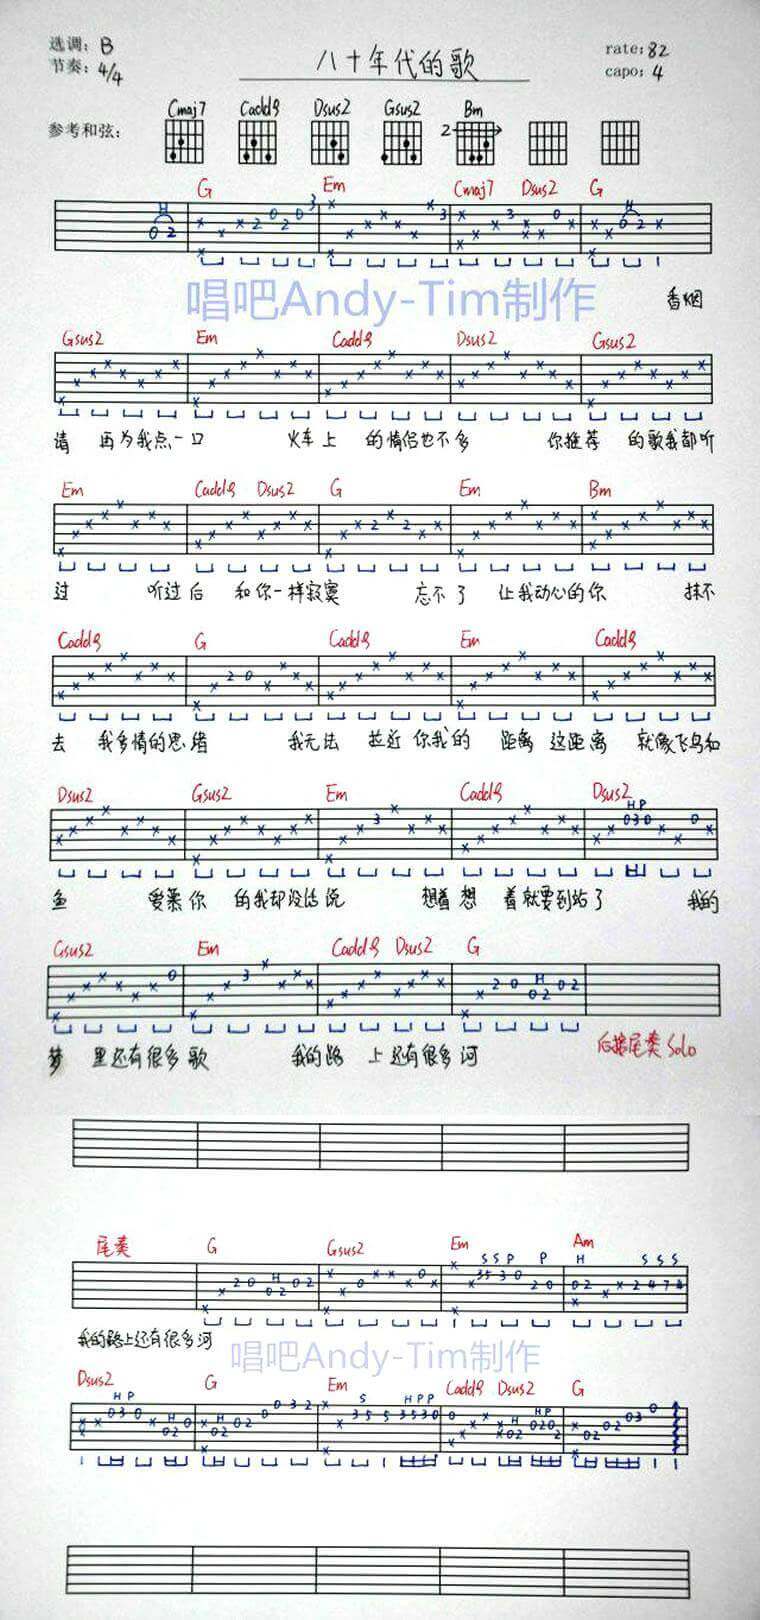 选调: B
八十年代的歌
rate: 82
节奏: 4/4
capo: 4
参考和弦:
Cmaj7 Cadd9 Dsus2 Gsus2 Bm
2
G Em Cmaj7 Dsus2 G
唱吧Andy-Tim制作
香烟
Gsus2 Em Cadd9 Dsus2 Gsus2
请 再为我点一口 火车上 的情侣也不多 你推荐 的歌我都听
Em Cadd9 Dsus2 G Em Bm
过 听过后 和你一样寂寞 忘不了 让我动心的你 抹不
Cadd9 G Cadd9 Em Cadd9
去 我多情的思绪 我无法 拉近你我的 距离 这距离 就像飞鸟和
Dsus2 Gsus2 Em Cadd9 Dsus2
H P
鱼 爱慕你 的我却没法说 想着想 着就要到站了 我的
Gsus2 Em Cadd9 Dsus2 G
梦 里还有很多歌 我的路 上还有很多河
后接尾奏 Solo
尾奏 G Gsus2 Em Am
S S P P H S S S
我的路上还有很多河
唱吧Andy-Tim制作
Dsus2 G Em Cadd9 Dsus2 G